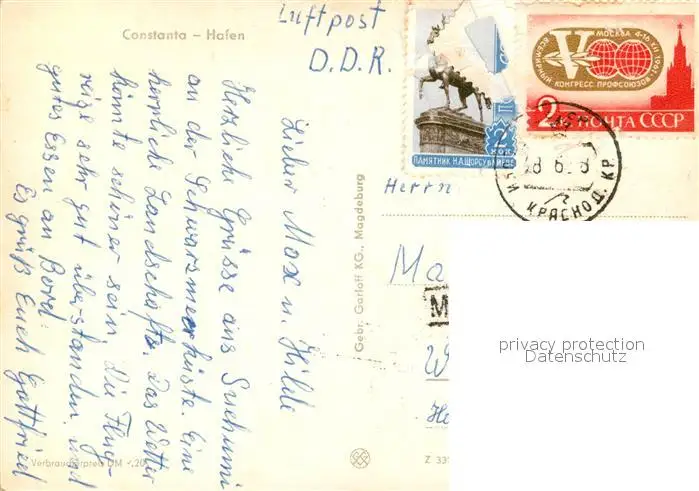 Constanta – Hafen
Luftpost
D.D.R.
Lieber Max u. Hilde
Herzliche Grüsse aus Suchumi
an der Schwarzmeerküste. Eine
herrliche Landschaft. Das Wetter
könnte schöner sein. Die Flug-
reise sehr gut überstanden und
gutes Essen an Bord.
Es grüß Euch Gottfried
Verbraucherpreis DM -.20
Gebr. Garloff KG., Magdeburg
Z 33
ПАМЯТНИК Н.А.ЩОРСУ В КИЕВЕ
2
КОП.
V
МОСКВА 4-16 XII 1961
ВСЕМИРНЫЙ КОНГРЕСС ПРОФСОЮЗОВ
2 К ПОЧТА СССР
КРАСНОД. КР.
Herrn
Ma
M
W
privacy protection
Datenschutz